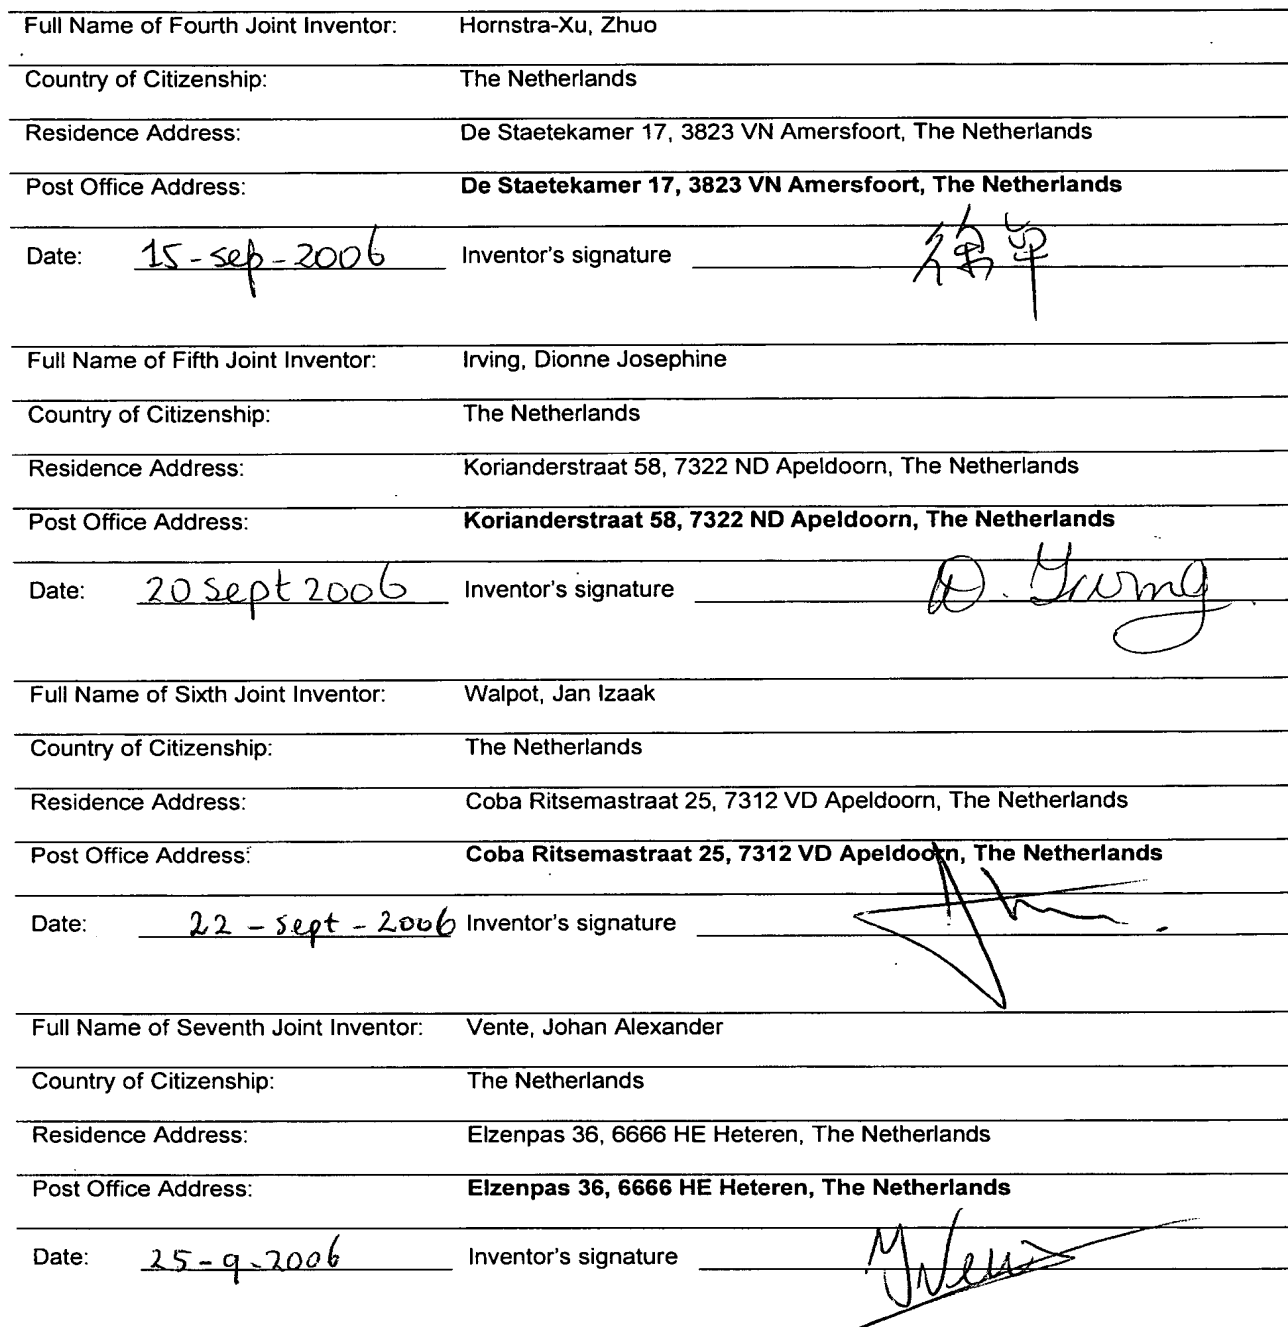 Full Name of Fourth Joint Inventor: Hornstra-Xu, Zhuo
Country of Citizenship: The Netherlands
Residence Address: De Staetekamer 17, 3823 VN Amersfoort, The Netherlands
Post Office Address: De Staetekamer 17, 3823 VN Amersfoort, The Netherlands
Date: 15-sep-2006 Inventor's signature 徐
Full Name of Fifth Joint Inventor: Irving, Dionne Josephine
Country of Citizenship: The Netherlands
Residence Address: Korianderstraat 58, 7322 ND Apeldoorn, The Netherlands
Post Office Address: Korianderstraat 58, 7322 ND Apeldoorn, The Netherlands
Date: 20 Sept 2006 Inventor's signature D. Irving
Full Name of Sixth Joint Inventor: Walpot, Jan Izaak
Country of Citizenship: The Netherlands
Residence Address: Coba Ritsemastraat 25, 7312 VD Apeldoorn, The Netherlands
Post Office Address: Coba Ritsemastraat 25, 7312 VD Apeldoorn, The Netherlands
Date: 22 - sept - 2006 Inventor's signature
Full Name of Seventh Joint Inventor: Vente, Johan Alexander
Country of Citizenship: The Netherlands
Residence Address: Elzenpas 36, 6666 HE Heteren, The Netherlands
Post Office Address: Elzenpas 36, 6666 HE Heteren, The Netherlands
Date: 25-9-2006 Inventor's signature